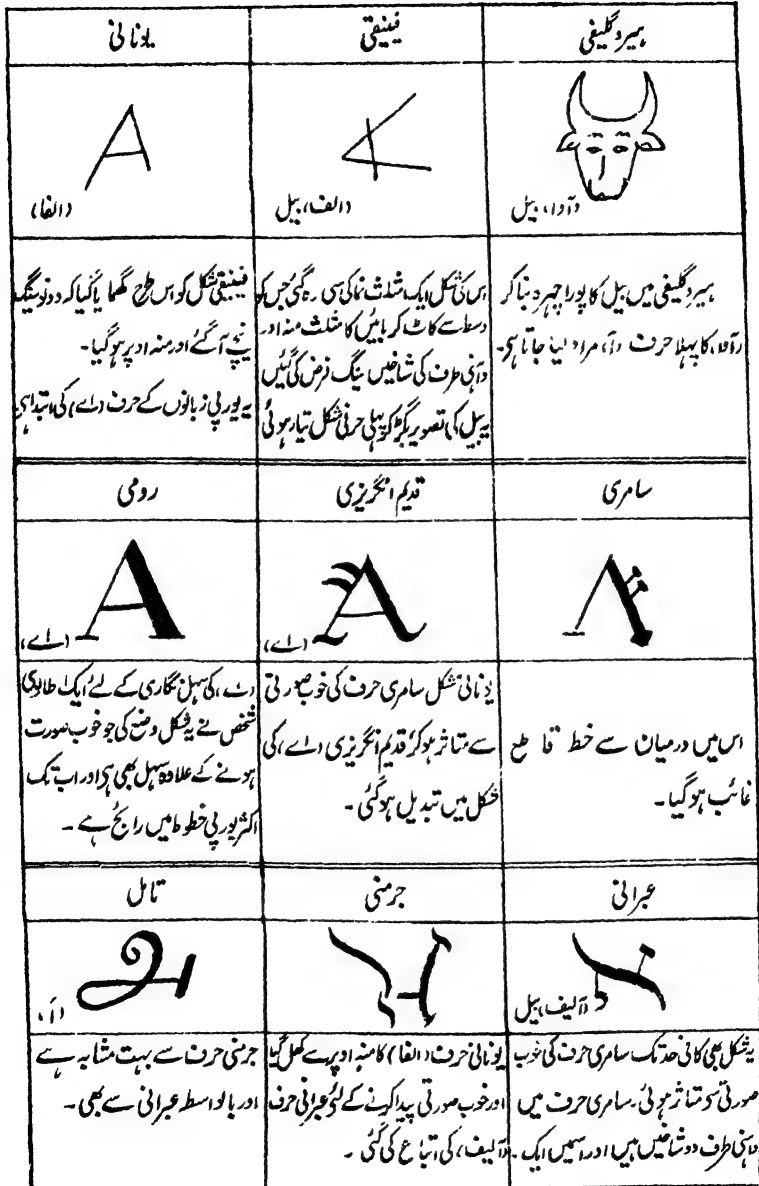 ہیروگلیفی
(آوا، بیل
ہیروگلیفی میں بیل کا پورا چہرہ بناکر
(آوا، کا پہلا حرف (آ، مراد لیا جاتا ہی۔
فینیقی
(الف، بیل
اس کی شکل ایک مثلث نما کی سی رہ گئی جس کو
وسط سے کاٹ کر بائیں کا مثلث منہ اور
داہنی طرف کی شاخیں سینگ فرض کی گئیں
یہ بیل کی تصویر بگڑ کو پہلی حرفی شکل تیار ہوئی
یونانی
(الفا)
فینیقی شکل کو اس طرح گھمایا گیا کہ دونو سینگ
نیچے آگئے اور منہ اوپر ہوگیا۔
یہ یورپی زبانوں کے حرف (اے، کی ابتدا ہی
سامری
اس میں درمیان سے خط قاطع
غائب ہوگیا۔
قدیم انگریزی
(اے،
یونانی شکل سامری حرف کی خوب صورتی
سے متاثر ہوکر قدیم انگریزی (اے، کی
شکل میں تبدیل ہوگئی۔
رومی
(اے،
کی سہل نگاری کے لئے ایک اطالوی
شخص نے یہ شکل وضع کی جو خوب صورت
ہونے کے علاوہ سہل بھی ہی اور اب تک
اکثر یورپی خطوط میں رائج ہے۔
عبرانی
(آلیف، بیل
یہ شکل بھی کافی حد تک سامری حرف کی خوب
صورتی سے متاثر ہوئی۔ سامری حرف میں
داہنی طرف دو شاخیں ہیں اور اسمیں ایک۔
جرمنی
یونانی حرف (الفا) کا منہ اوپر سے کھل گیا
اور خوب صورتی پیدا کرنے کے لئے عبرانی حرف
(آلیف، کی اتباع کی گئی۔
تامل
(آ،
جرمنی حرف سے بہت مشابہ ہے
اور بالواسطہ عبرانی سے بھی۔